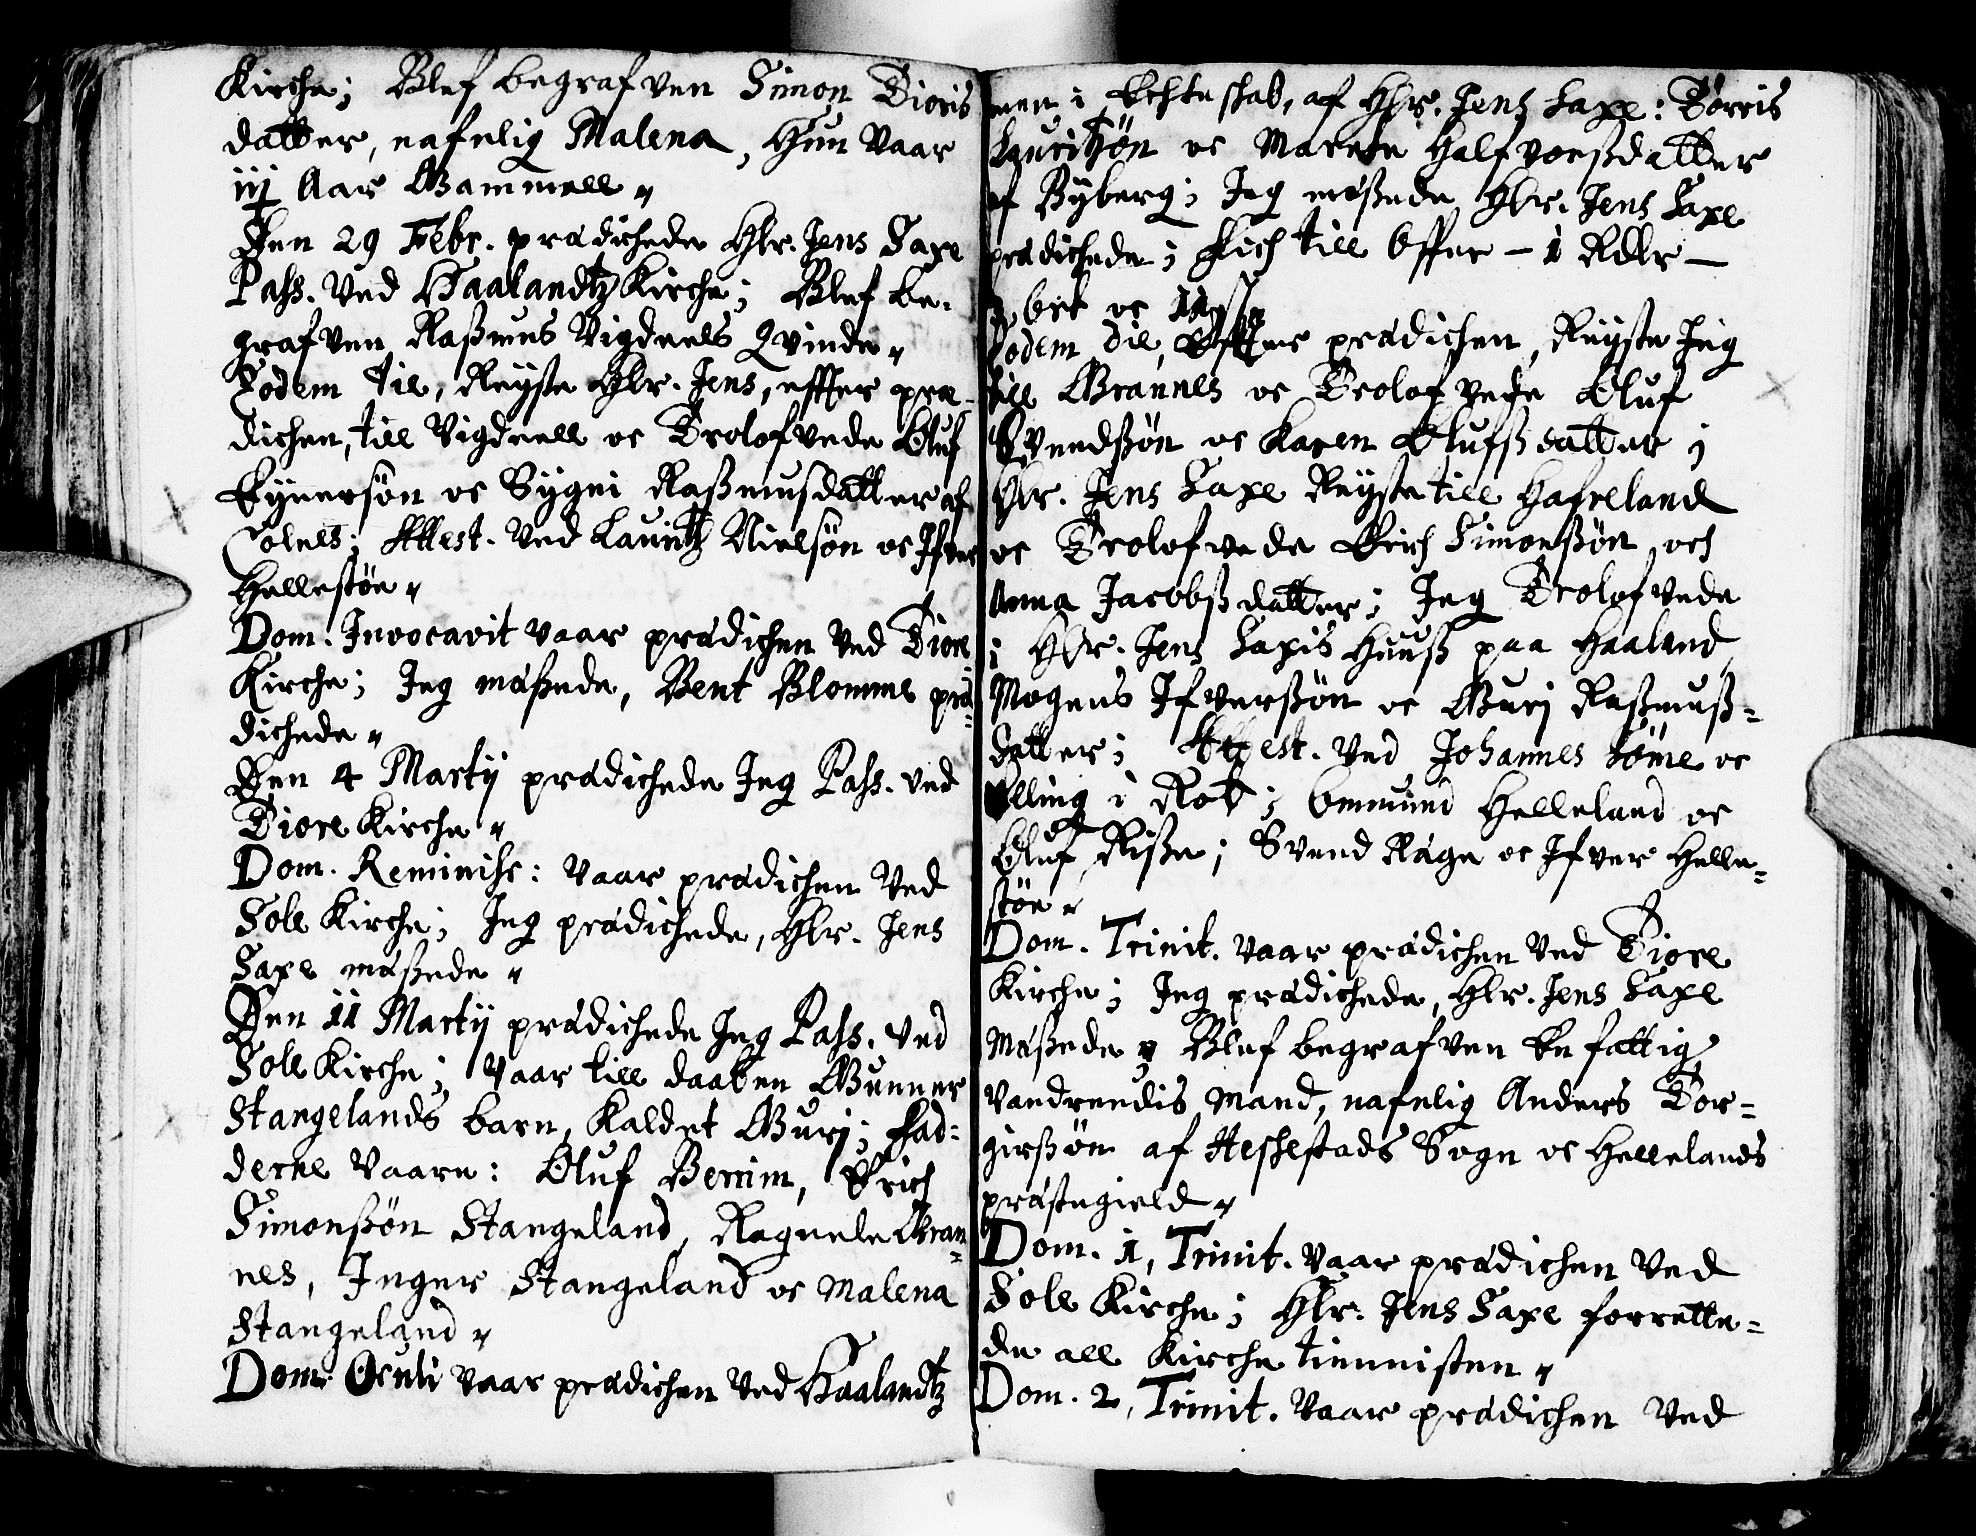 Kirche; Blef begrafven Simon Tioris
datter, nafnlig Malena, Hun vaar
iij Aar Gammell
Den 29 Febr. prædichede Hlr. Jens Saxe
Pass. ved Haalandtz Kirche; Blef be-
grafven Rassmus Vigdeels Qvinde
Sodem tie, Reyste Hlr. Jens, effter præ-
dichen, till Vigdeell oc Trolofvede Oluf
Eynersøn oc Sygni Rassmusdatter af
Solnes; Attest. ved Lauritz Nielsøn oc Ifver
Hellestøe
Dom. Invocavit vaar prædichen ved Tiore
Kirche; Jeg messede, Bent Blomme præ-
dichede
Den 4 Martij prædichede Jeg Pass. ved
Tiore Kirche
Dom. Reminisc: vaar prædichen ved
Sole Kirche; Jeg prædichede, Hlr. Jens
Saxe messede
Den 11 Martij prædichede Jeg Pass. ved
Sole Kirche; vaar till daaben Gunner
Stangelands barn, Kaldet Guri; Fad-
derne vaare: Oluf Berrim, Erich
Simonssøn Stangeland, Ragnele Gran-
nes, Inger Stangeland oc Malena
Stangeland
Dom. Oculi vaar prædichen ved Haalandtz
men i Echteskab, af Hlr. Jens Saxe: Torris
Lauritzøn oc Marete Halfvorssdatter
af Byberg; Jeg messede, Hlr. Jens Saxe
prædichede; Fich till Offer - 1 Rdlr -
3 ort oc 11 s
Sodem die, Effter prædichen, Reyste Jeg
till Grannes oc Trolofvede Oluf
Svendssøn oc Karen Olufssdatter;
Hlr. Jens Saxe Reyste till Hafreland
oc Trolofvede Erich Simonssøn och
Anna Jacobssdatter; Jeg Trolofvede
i Hlr. Jens Saxis Huuss paa Haaland,
Mogens Ifverssøn oc Guri Rassmuss-
datter; Attest. ved Johannes Sømme oc
Elling i Rot; Ommund Helleland oc
Oluf Risse; Svend Rege oc Ifver Helle-
støe
Dom. Trinit. vaar prædichen ved Tiore
Kirche; Jeg prædichede, Hlr. Jens Saxe
Messede; Blef begrafven En fattig
vandrendis Mand, nafnlig Anders Tor-
girssøn af Heskestads Sogn oc Hellelands
præstegield
Dom. 1, Trinit. vaar prædichen ved
Sole Kirche; Hlr. Jens Saxe forrette-
de all Kirche tiennisten
Dom. 2, Trinit. vaar prædichen ved